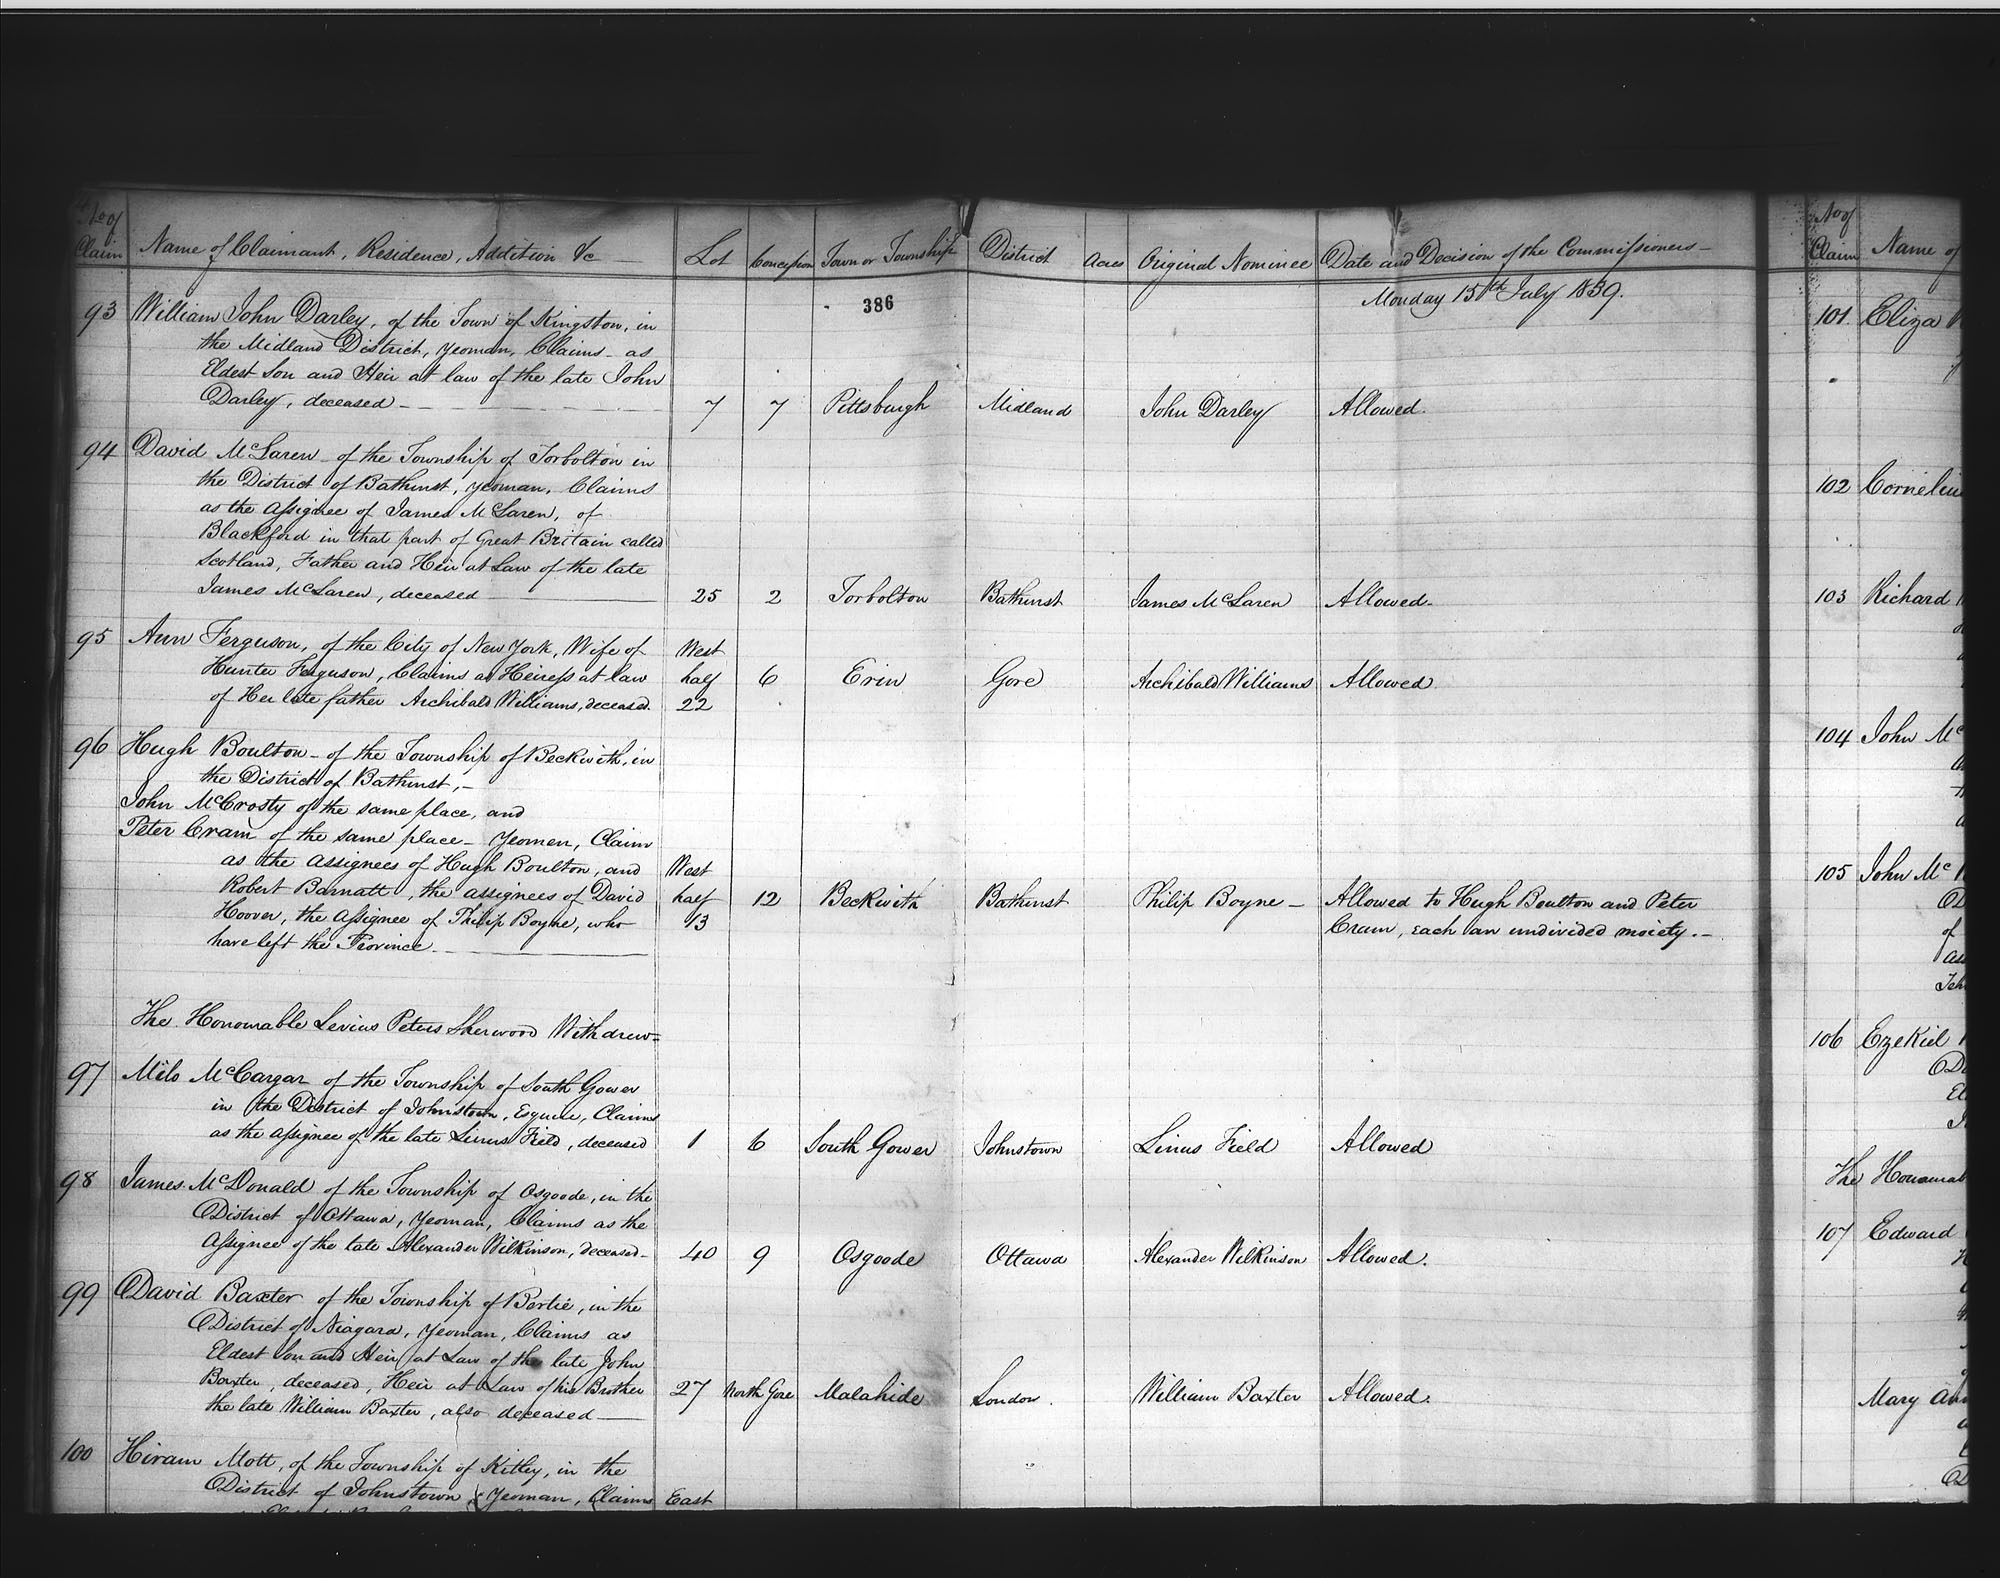 No of
Claim
Name of Claimant, Residence, Addition &c
Lot
Concession
Town or Township
District
Acres
Original Nominee
Date and Decision of the Commissioners
386
Monday 15th July 1839.
93 William John Darley, of the Town of Kingston, in
the Midland District, yeoman, Claims as
Eldest Son and Heir at law of the late John
Darley, deceased
7 7 Pittsburgh Midland John Darley Allowed.
94 David McLaren of the Township of Torbolton in
the District of Bathurst, yeoman, Claims
as the Assignee of James McLaren, of
Blackford in that part of Great Britain called
Scotland, Father and Heir at Law of the late
James McLaren, deceased 25 2 Torbolton Bathurst James McLaren Allowed.
95 Ann Ferguson, of the City of New York, Wife of West
Hunter Ferguson, Claims as Heiress at law half 6 Erin Gore Archibald Williams Allowed
of Her late father Archibald Williams, deceased. 22
96 Hugh Boulton of the Township of Beckwith, in
the District of Bathurst,
John McCrosty of the same place, and
Peter Cram of the same place Yeomen, Claim
as the assignees of Hugh Boulton, and West
Robert Barnatt, the assignees of David half 12 Beckwith Bathurst Philip Boyne Allowed to Hugh Boulton and Peter
Hoover, the Assignee of Philip Boyne, who 13 Cram, each an undivided moiety.
have left the Province
The Honourable Levius Peters Sherwood Withdrew
97 Milo McCargar of the Township of South Gower
in the District of Johnstown, Esquire, Claims
as the Assignee of the late Linus Field, deceased 1 6 South Gower Johnstown Linus Field Allowed
98 James McDonald of the Township of Osgoode, in the
District of Ottawa, yeoman, Claims as the
Assignee of the late Alexander Wilkinson, deceased 40 9 Osgoode Ottawa Alexander Wilkinson Allowed.
99 David Baxter of the Township of Bertie, in the
District of Niagara, yeoman, Claims as
Eldest Son and Heir at Law of the late John
Baxter, deceased, Heir at Law of his Brother 27 North Gore Malahide London. William Baxter Allowed.
the late William Baxter, also deceased
100 Hiram Mott, of the Township of Kitley, in the
District of Johnstown, Yeoman, Claims East
No of
Claim
Name of
101 Eliza
102 Cornelius
103 Richard
104 John Mc
105 John Mc
of
106 Ezekiel
The Honourabl
107 Edward
Mary Ann